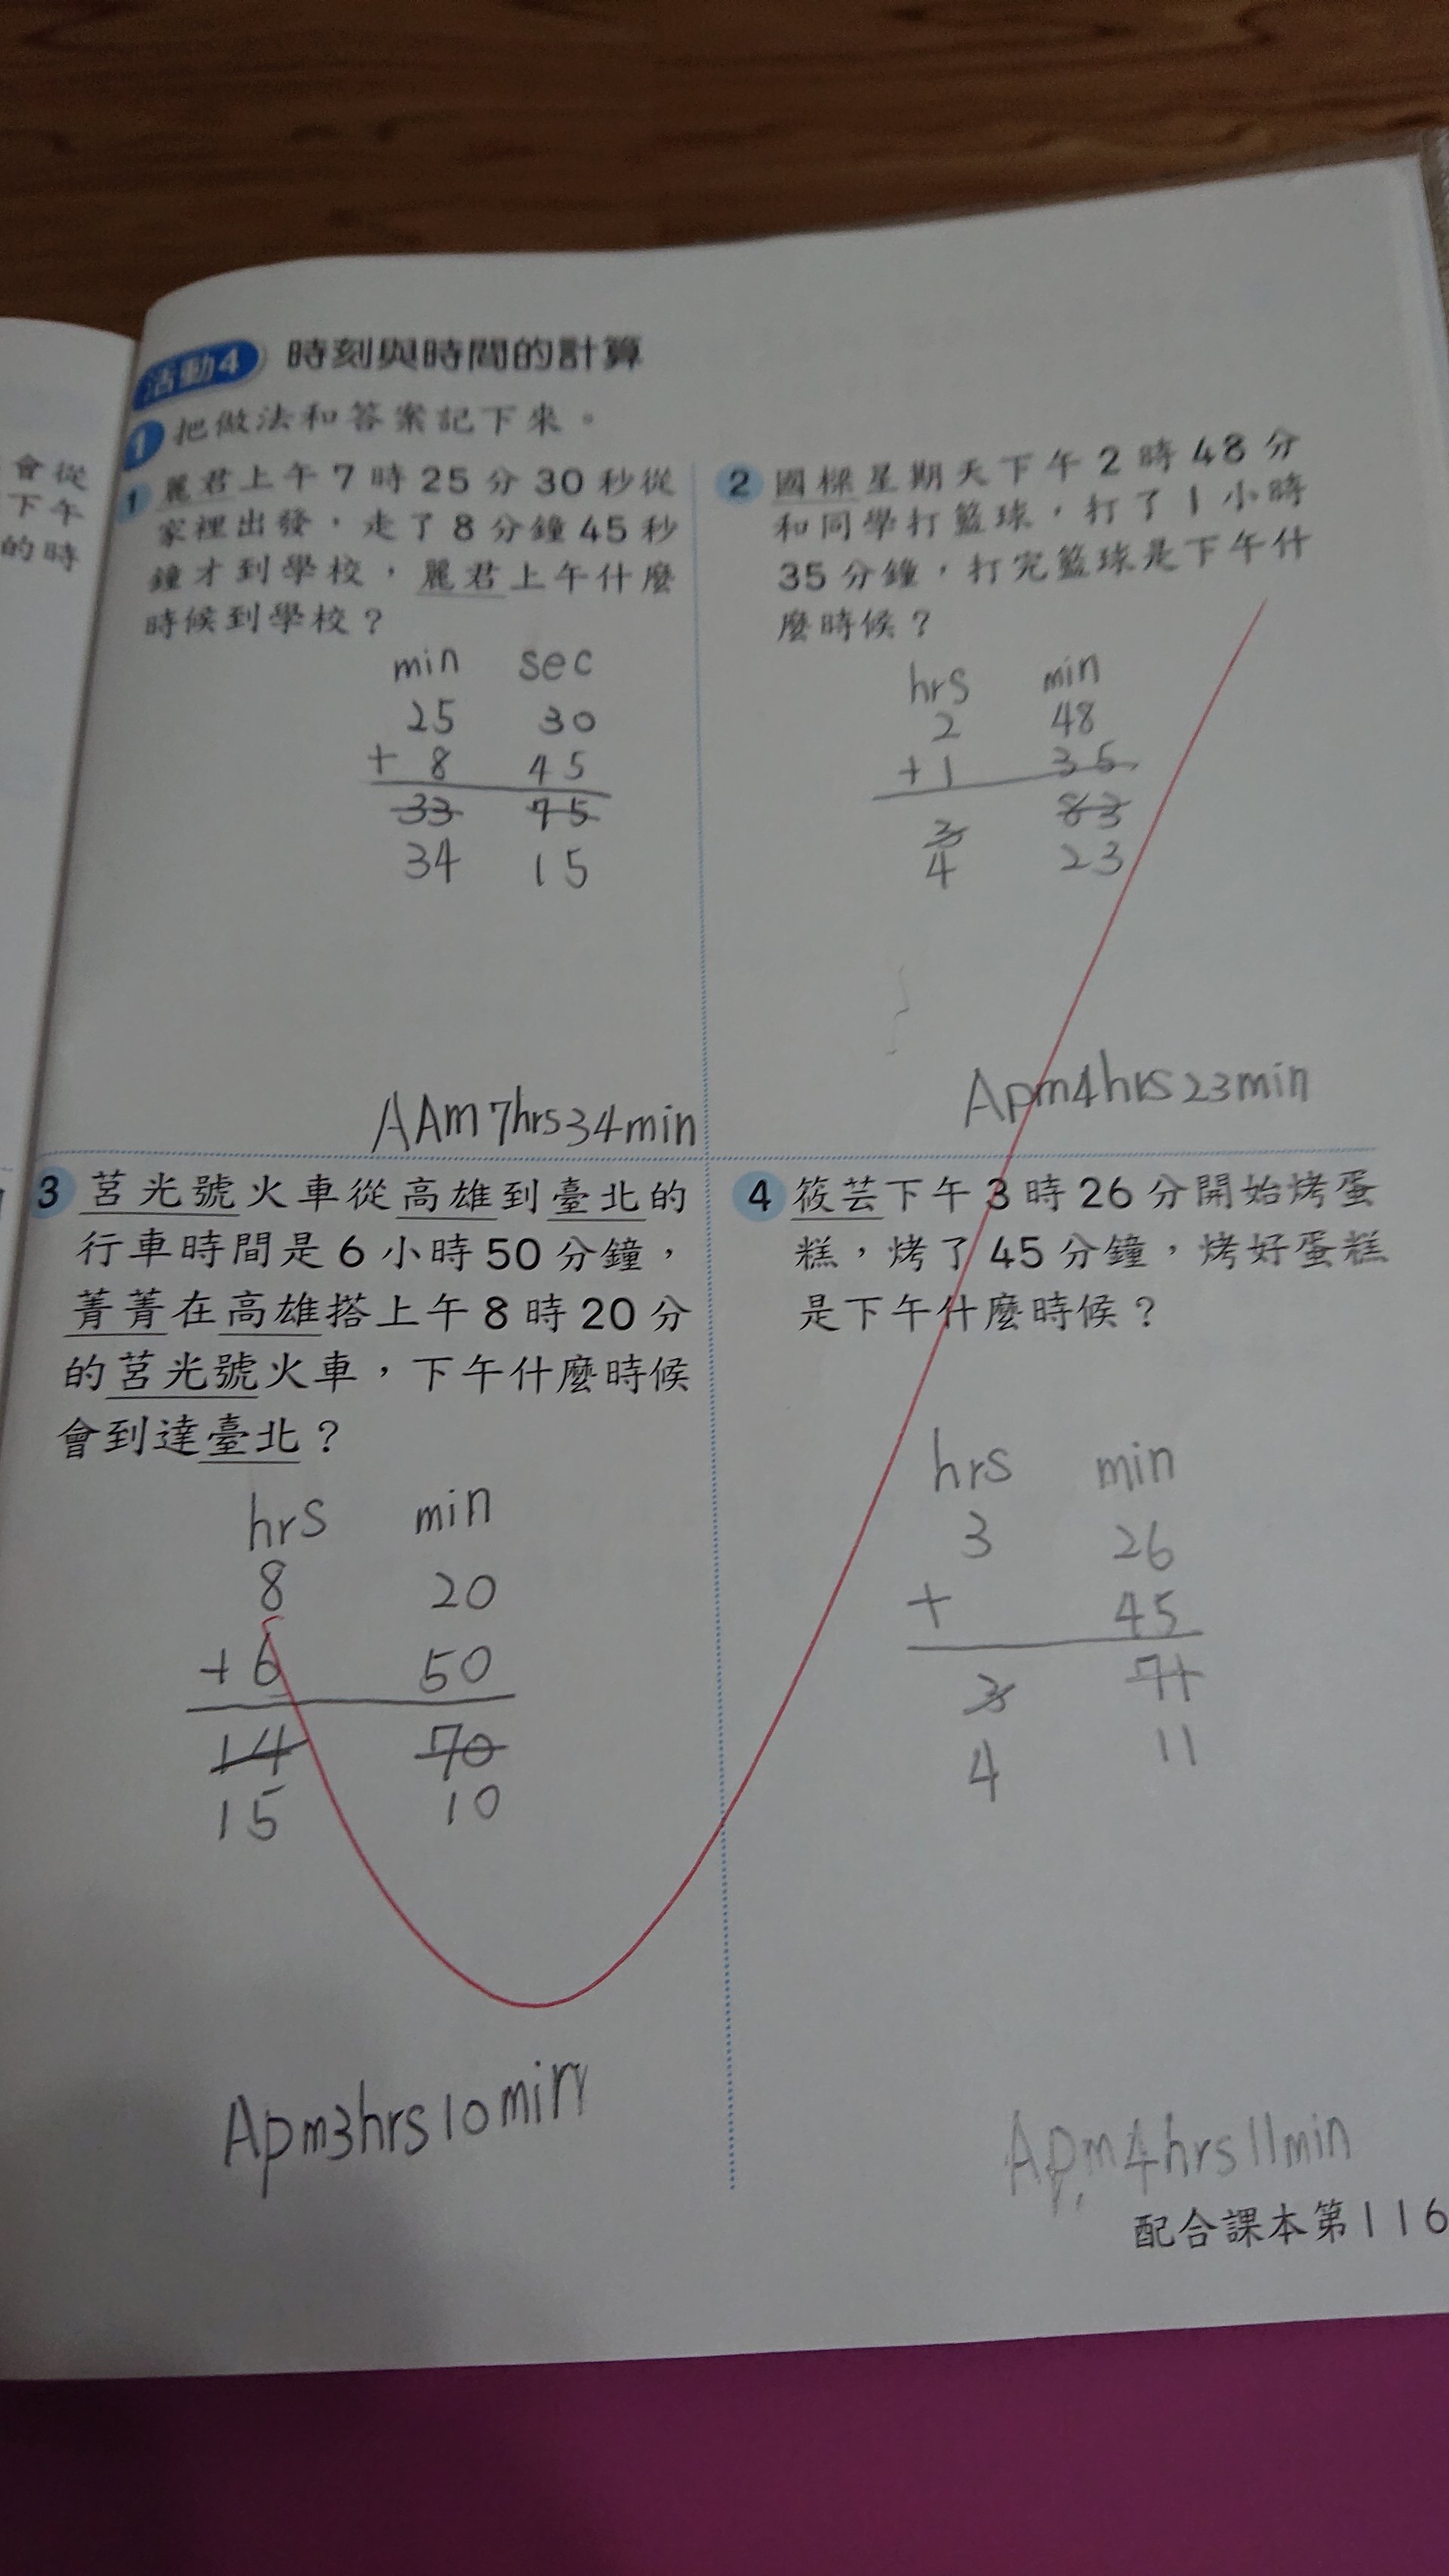 會從
下午
的時
活動4 時刻與時間的計算
1 把做法和答案記下來。
1 麗君上午7時25分30秒從
家裡出發，走了8分鐘45秒
鐘才到學校，麗君上午什麼
時候到學校？
min sec
25 30
+ 8 45
33 75
34 15
AAm7hrs34min
2 國樑星期天下午2時48分
和同學打籃球，打了1小時
35分鐘，打完籃球是下午什
麼時候？
hrs min
2 48
+1 35
3 83
4 23
Apm4hrs23min
3 莒光號火車從高雄到臺北的
行車時間是6小時50分鐘，
菁菁在高雄搭上午8時20分
的莒光號火車，下午什麼時候
會到達臺北？
hrs min
8 20
+6 50
14 70
15 10
Apm3hrs10min
4 筱芸下午3時26分開始烤蛋
糕，烤了45分鐘，烤好蛋糕
是下午什麼時候？
hrs min
3 26
+ 45
3 71
4 11
Apm4hrs11min
配合課本第116